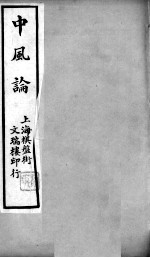 中風論
上海棋盤街
文瑞樓印行